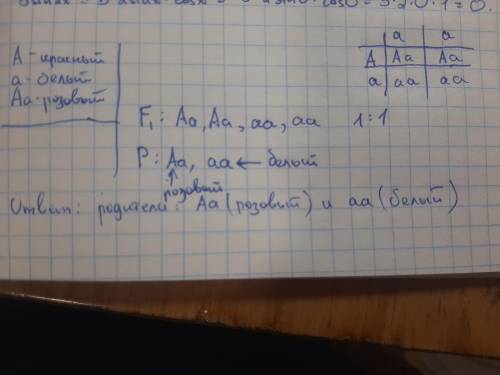 cosx
cosO = 3·2·0·1 = 0.
A - красный
a - белый
Aa - розовый
a a
A Aa Aa
a aa aa
F₁: Aa, Aa, aa, aa 1:1
P: Aa, aa ← белый
↑
розовый
Ответ: родители: Aa (розовый) и aa (белый)